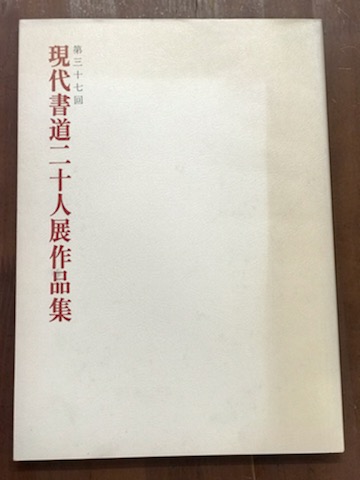 第三十七回
現代書道二十人展作品集